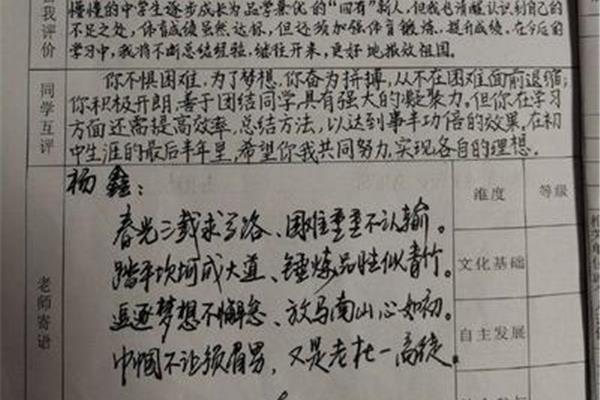 我评价
懵懂的中学生逐步成长为品学兼优的“四有”新人,但我也清醒认识到自己的
不足之处,体育成绩虽然达标,但还须加强体育锻炼、提升成绩。在今后的
学习中,我将不断总结经验,继往开来,更好地报效祖国。
同学互评
你不惧困难,为了梦想,你奋力拼搏,从不在困难面前退缩;
你积极开朗、善于团结同学,具有强大的凝聚力。但你在学习
方面还需提高效率,总结方法,以达到事半功倍的效果。在初
中生涯的最后半年里,希望你我共同努力,实现各自的理想。
老师寄语
杨鑫:
春光三载求学路、困难重重不认输。
踏平坎坷成大道、锤炼品性似青竹。
追逐梦想不懈怠、放马南山心如初。
巾帼不让须眉男,又是老杜一高徒。
维度
等级
文化基础
自主发展